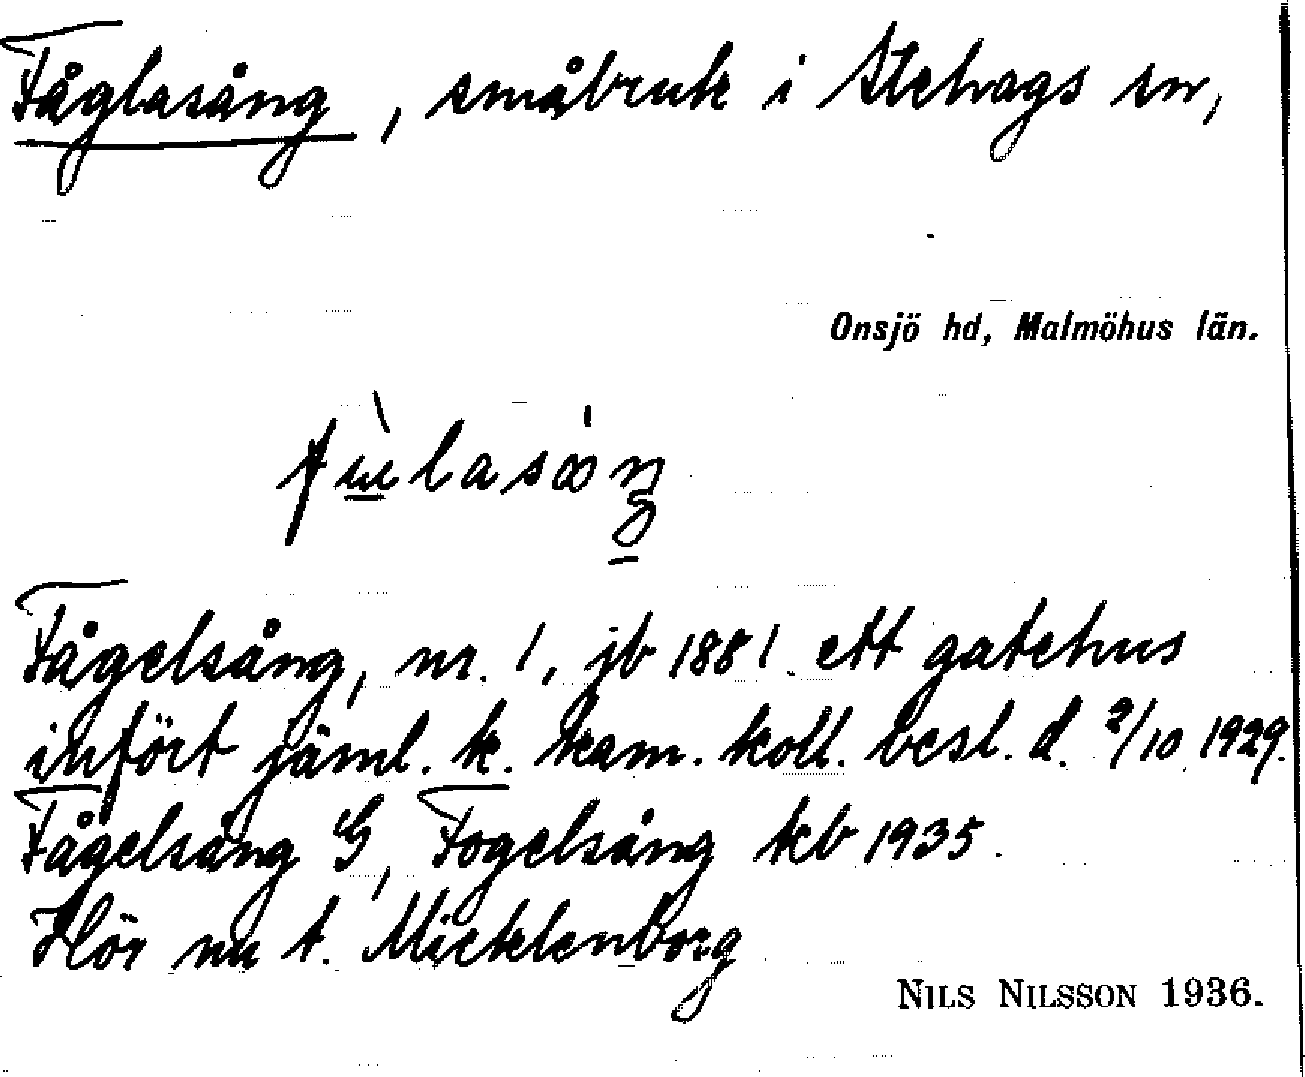 Fåglasång, småbruk i Stehags sn,
Onsjö hd, Malmöhus län.
Fågelsång, nr. 1, jb 1881. ett gatehus
infört jäml. k. kam. koll. besl. d. 2/10 1929.
Fågelsång G, Fogelsång kb 1935.
Hör nu t. Micklenborg
NILS NILSSON 1936.